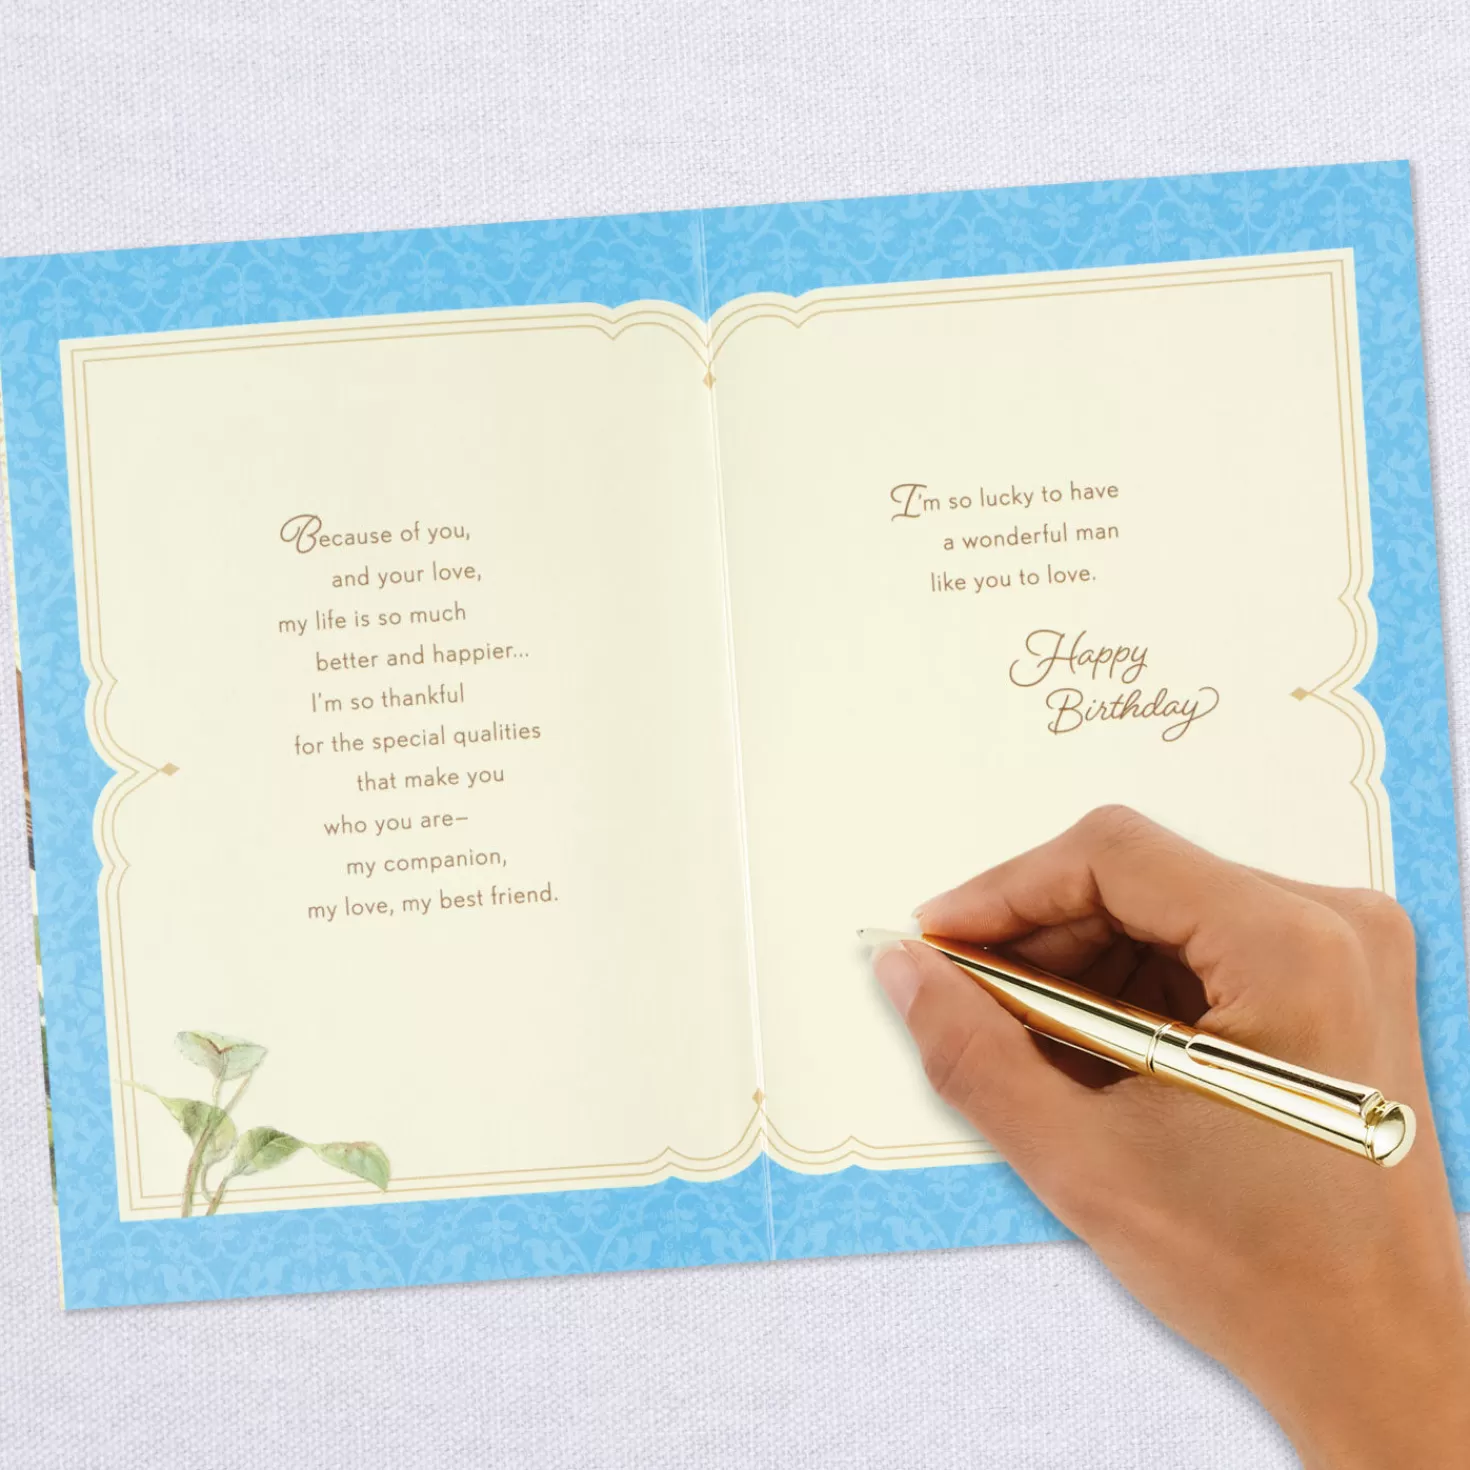 Because of you,
and your love,
my life is so much
better and happier...
I'm so thankful
for the special qualities
that make you
who you are–
my companion,
my love, my best friend.
I'm so lucky to have
a wonderful man
like you to love.
Happy
Birthday